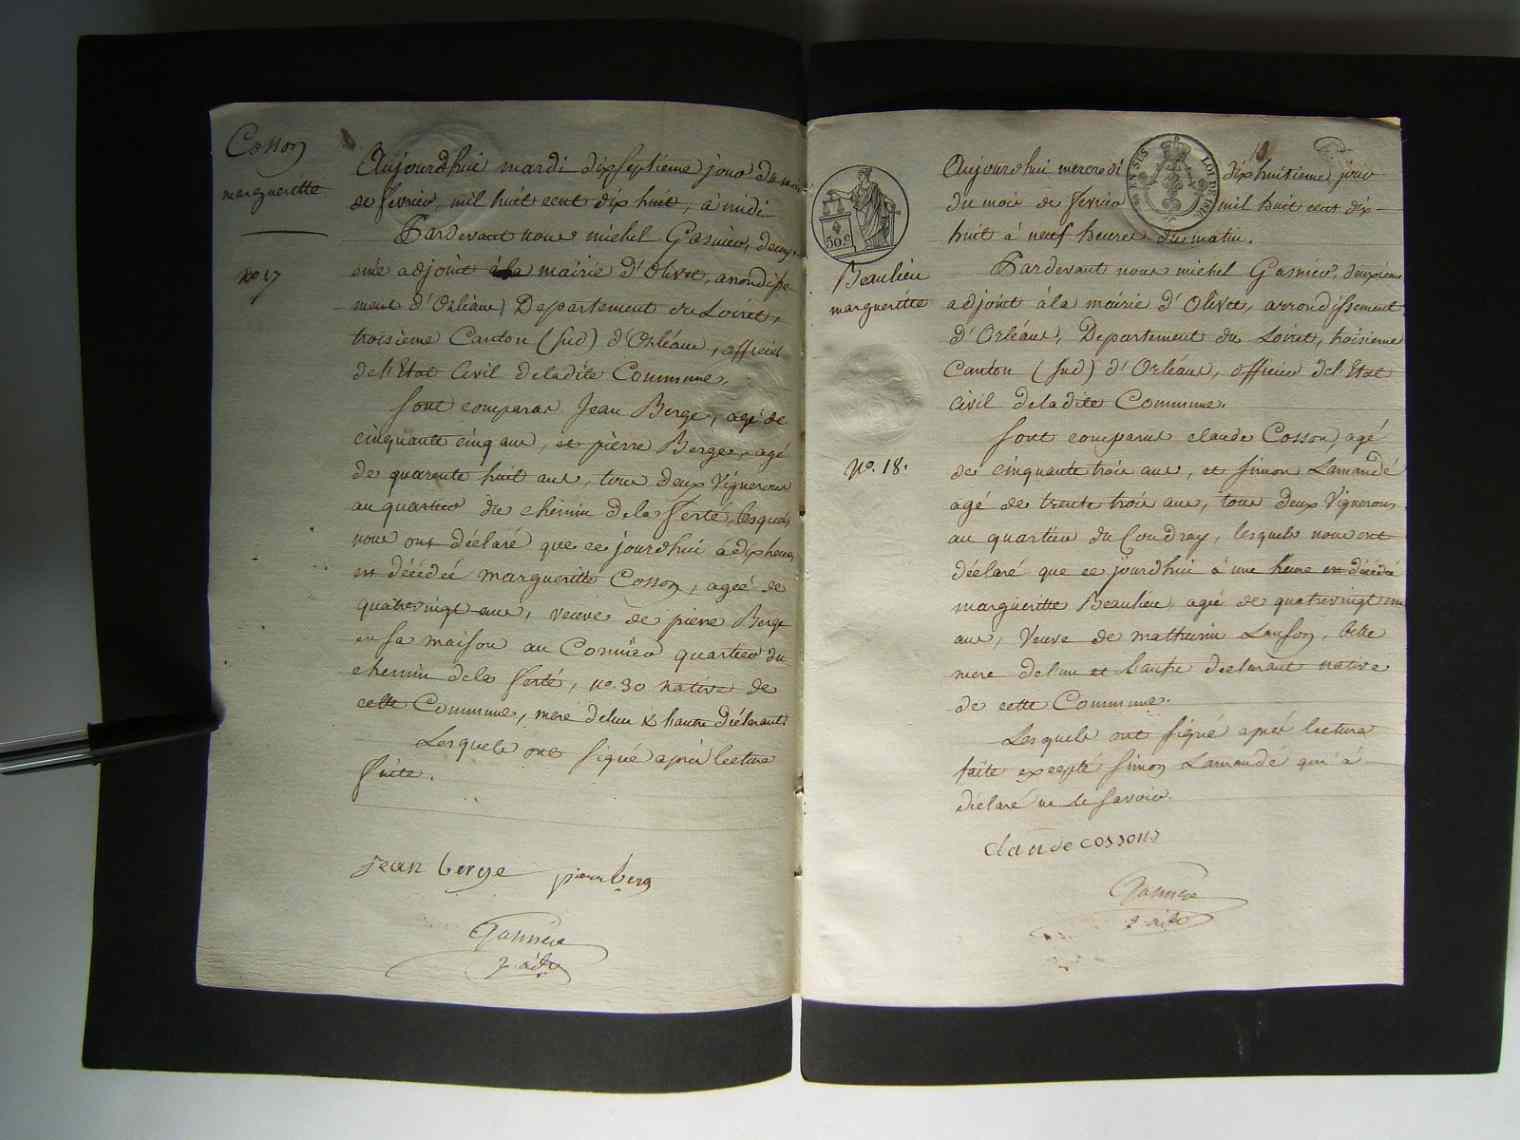 Cosson
marguerittte
no 17
Aujourd'hui mardi dixseptieme jour du mois
de fevrier, mil huit cent dix huit, à midi
Pardevant nous michel Gasnier, deuxi
eme adjoint à la mairie d'Olivet, arondisse
ment d'Orléans, Departement du Loiret,
troisieme Canton (sud) d'Orléans, officier
de l'Etat Civil de ladite Commune.
Sont comparus Jean Berge, agé de
cinquante cinq ans, et pierre Berge, agé
de quarente huit ans, tous deux Vignerons
au quartier du chemin de la ferté, lesquels
nous ont déclaré que ce jourd'hui à dix heures
est décédée margueritte Cosson, ageé de
quatrevingt ans, veuve de pierre Berge
en sa maison au quartier du
chemin de la ferté, no. 30 native de
cette Commune, mere de l'un & l'autre déclarants
Lesquels ont signé après lecture
faite.
jean berge pierre berge
Gasnier
2. adjt
50 c
LOIRET
Beaulieu
margueritte
No. 18.
Aujourd'hui mercredi dixhuitieme jour
du mois de fevrier mil huit cent dix
huit à neuf heures du matin.
Pardevant nous michel Gasnier, deuxieme
adjoint à la mairie d'Olivet, arrondissement
d'Orléans, Departement du Loiret, troisieme
Canton (sud) d'Orléans, officier de l'Etat
Civil de ladite Commune.
Sont comparus claude Cosson, agé
de cinquante trois ans, et simon Lamandé
agé de trente trois ans, tous deux Vignerons
au quartier du Coudray, lesquels nous ont
déclaré que ce jourd'hui à une heure est décédée
margueritte Beaulieu, ageé de quatrevingt un
ans, Veuve de mathurin Cosson, belle
mere de l'un et l'autre declarant native
de cette Commune.
Lesquels ont signé après lecture
faite excepté simon Lamandé qui à
déclaré ne le savoir.
claude cosson
Gasnier
2. adjt